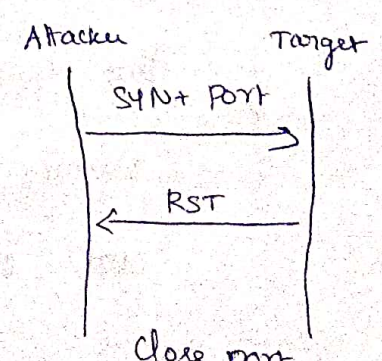 Attacker Target
SYN+ Port
RST
Close